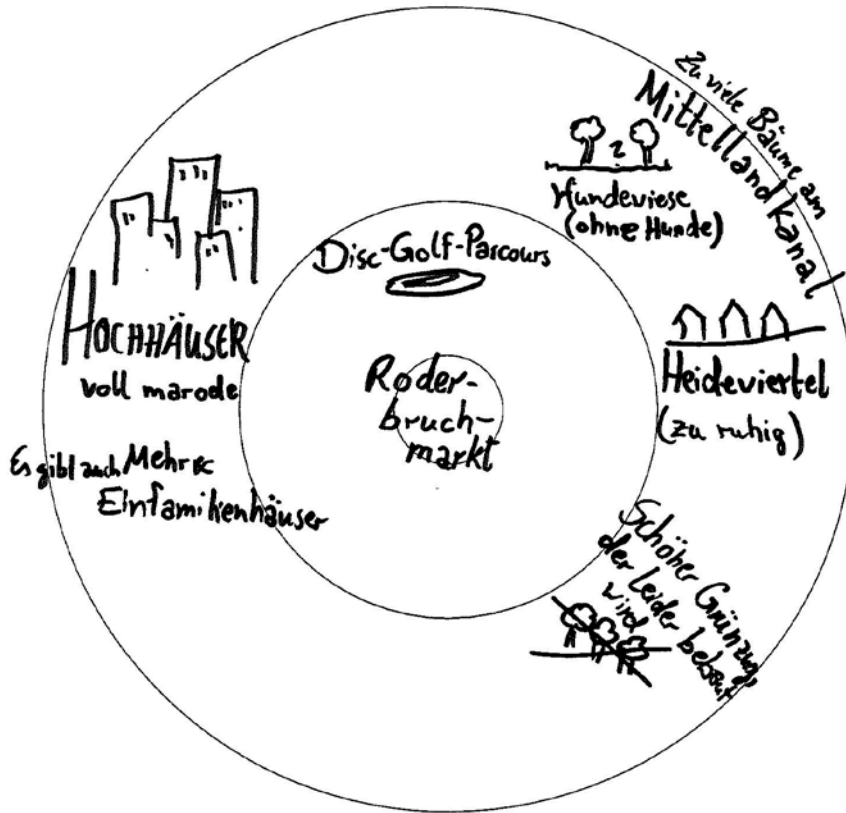 Zu viele Bäume am
Mittellandkanal
Hundewiese
(ohne Hunde)
Disc-Golf-Parcours
HOCHHÄUSER
voll marode
Roder-
bruch-
markt
Heideviertel
(zu ruhig)
Es gibt auch Mehr &
Einfamilienhäuser
Schöner Grünzug,
der leider bebaut
wird